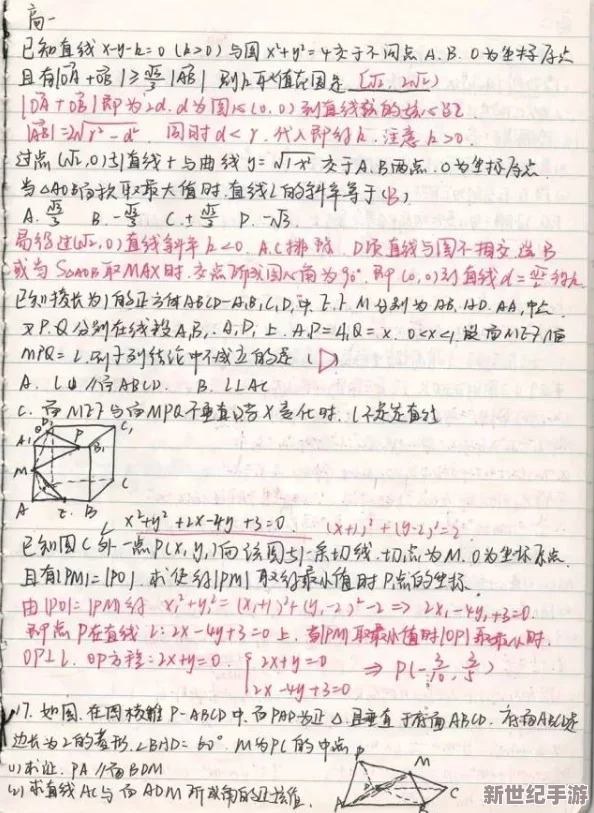 高一
已知直线 x-y-k=0 (k>0) 与圆 x²+y²=4 交于不同点 A、B. O为坐标原点
且有|OA+OB| ≥ √3/3 |AB| 则k 值 范围是 [√2, 2√2)
|OA+OB|即为2d. d为圆心(0,0)到直线 的
|AB|=2√(r²-d²) 同时d<r. 代入即得k. 注意k>0.
过点(√2,0)引直线l与曲线y=√(1-x²)交于A.B两点. O为坐标原点
当△AOB面积取最大值时.直线L的斜率等于(B)
A. √3/3 B. -√3/3 C. ±√3/3 D. -√3
易得过(√2,0)直线斜率k<0. A.C排除. D项直线与圆不相交 选B
或当S△AOB取MAX时. 交点 成圆心角为90°. 即(0,0)到直线d=√2/2 得k
已知棱长为1的正方体ABCD-A₁B₁C₁D₁中 E.F.M分别为AB.AD.AA₁中点
又P.Q分别在线段A₁B₁、A₁D₁上. A₁P=A₁Q=x. 0<x<1. 设面MEF∩面
MPQ=L. 则下列结论中不成立的是 (D)
A. L∥面ABCD. B. L⊥AC
C. 面MEF与面MPQ不垂直 D. 当X变化时. L不是定直线
D₁ C₁
Q P
A₁ B₁
M
C
A E B
x²+y²+2x-4y+3=0. (x+1)²+(y-2)²=2
已知圆C外一点P(x₁y₁)向该圆引一条切线. 切点为M. O为坐标原点.
且有|PM|=|PO|. 求使得|PM|取得最小值时P点的坐标.
由|PO|=|PM|得 x₁²+y₁²=(x₁+1)²+(y₁-2)²-2 => 2x₁-4y₁+3=0.
即点P在直线L:2x-4y+3=0上. 当|PM|取最小值时|OP|取最小时.
OP⊥L. OP方程: 2x+y=0 { 2x+y=0 ⇒ P(-3/10, 3/5)
2x-4y+3=0
17. 如图. 在四棱锥P-ABCD中. 面PAD为正△. 且垂直于底面ABCD. 底面ABCD是
边长为2的菱形. ∠BAD=60°. M为PC的中点
(1)求证. PA∥面BDM
(2)求直线AC与面ADM所成角的正弦值.
P
M
C
A B
新世纪手游